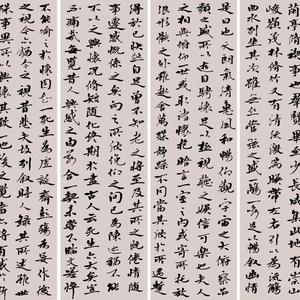 之蘭亭脩禊事也群賢畢至少長咸集此地有崇山
峻領茂林脩竹又有清流激湍暎帶左右引以為流觴
曲水列坐其次雖無絲竹管弦之盛一觴一詠亦足以暢敘幽情
是日也天朗氣清惠風和暢仰觀宇宙之大俯察品
類之盛所以遊目騁懷足以極視聽之娛信可樂也夫人
之相與俯仰一世或取諸懷抱悟言一室之內或因寄所託放
浪形骸之外雖趣舍萬殊靜躁不同當其欣於所遇暫
得於己快然自足不知老之將至及其所之既倦情隨
事遷感慨係之矣向之所欣俛仰之間以為陳跡猶不能
不以之興懷況脩短隨化終期於盡古人云死生亦大矣豈
不痛哉每攬昔人興感之由若合一契未嘗不臨文嗟悼
不能喻之於懷固知一死生為虛誕齊彭殤為妄作後
之視今亦由今之視昔悲夫故列敘時人錄其所述雖世
殊事異所以興懷其致一也後之